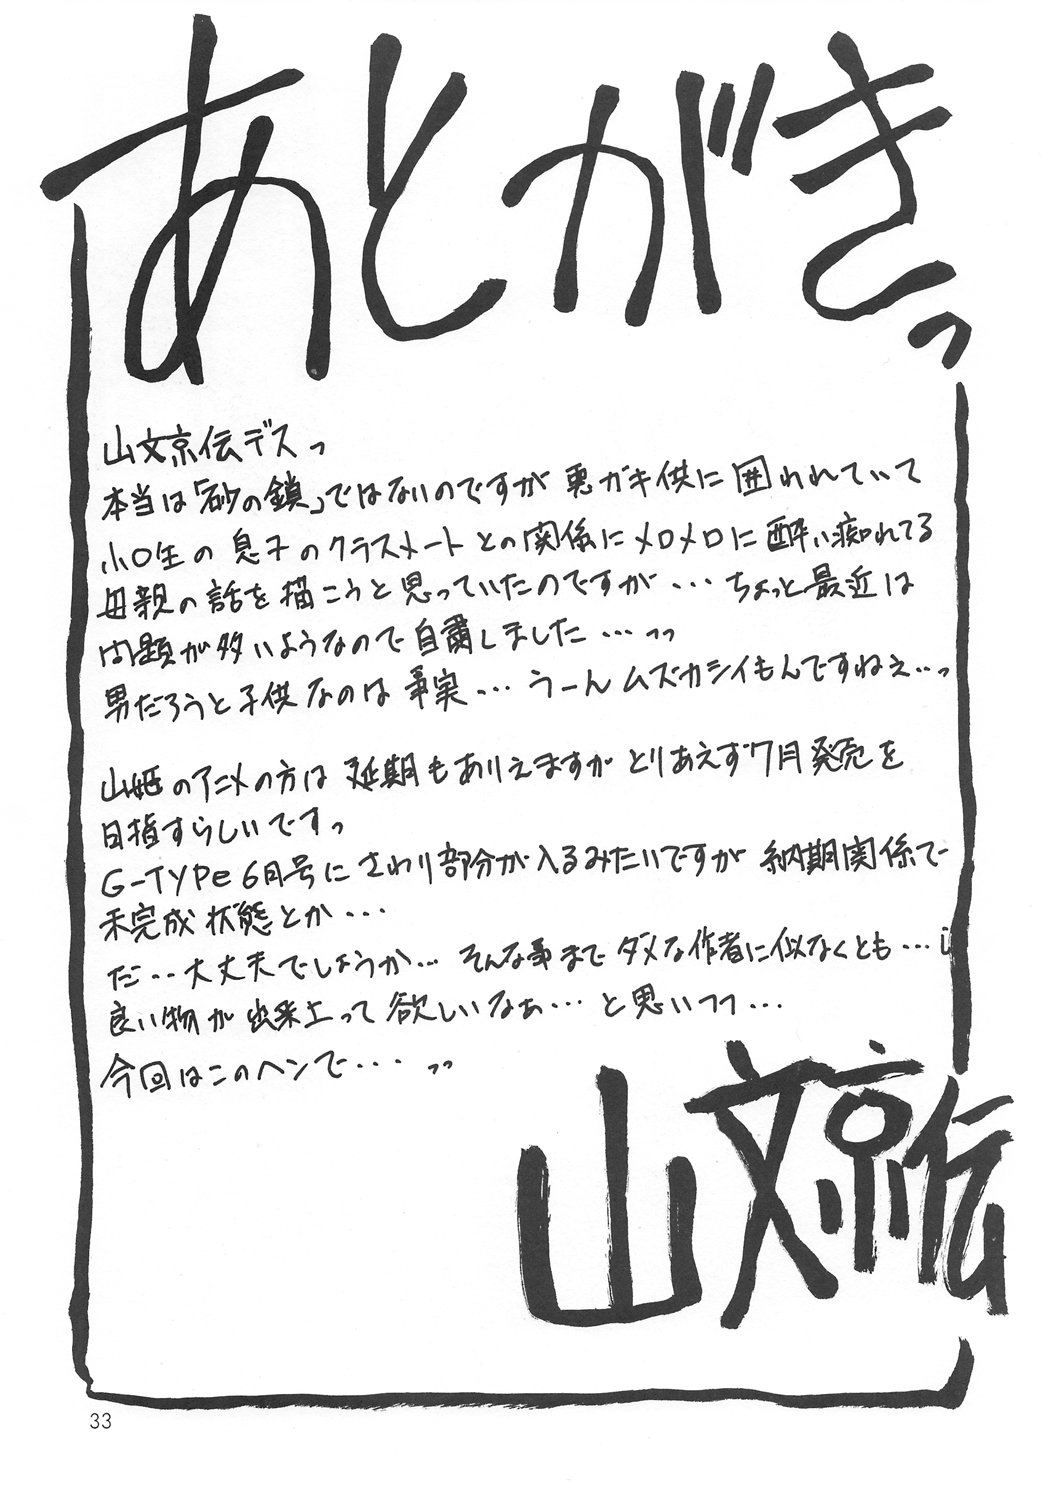 あとがきっ
山文京伝デスっ
本当は「砂の鎖」ではないのですが悪ガキ供に囲われていて
小○生の息子のクラスメートとの関係にメロメロに酔い痴れてる
母親の話を描こうと思っていたのですが・・・ちょっと最近は
問題が多いようなので自粛しました・・・っっ
男だろうと子供なのは事実・・・うーんムズカシイもんですねぇ・・・っ
山姫のアニメの方は延期もありえますがとりあえず7月発売を
目指すらしいですっ
G-TYPe 6月号にさわり部分が入るみたいですが納期関係で
未完成状態とか・・・
だ・・大丈夫でしょうか・・・そんな事までダメな作者に似なくとも・・・
良い物が出来上って欲しいなぁ・・・と思いつつ・・・
今回はこのヘンで・・・っっ
山文京伝
33